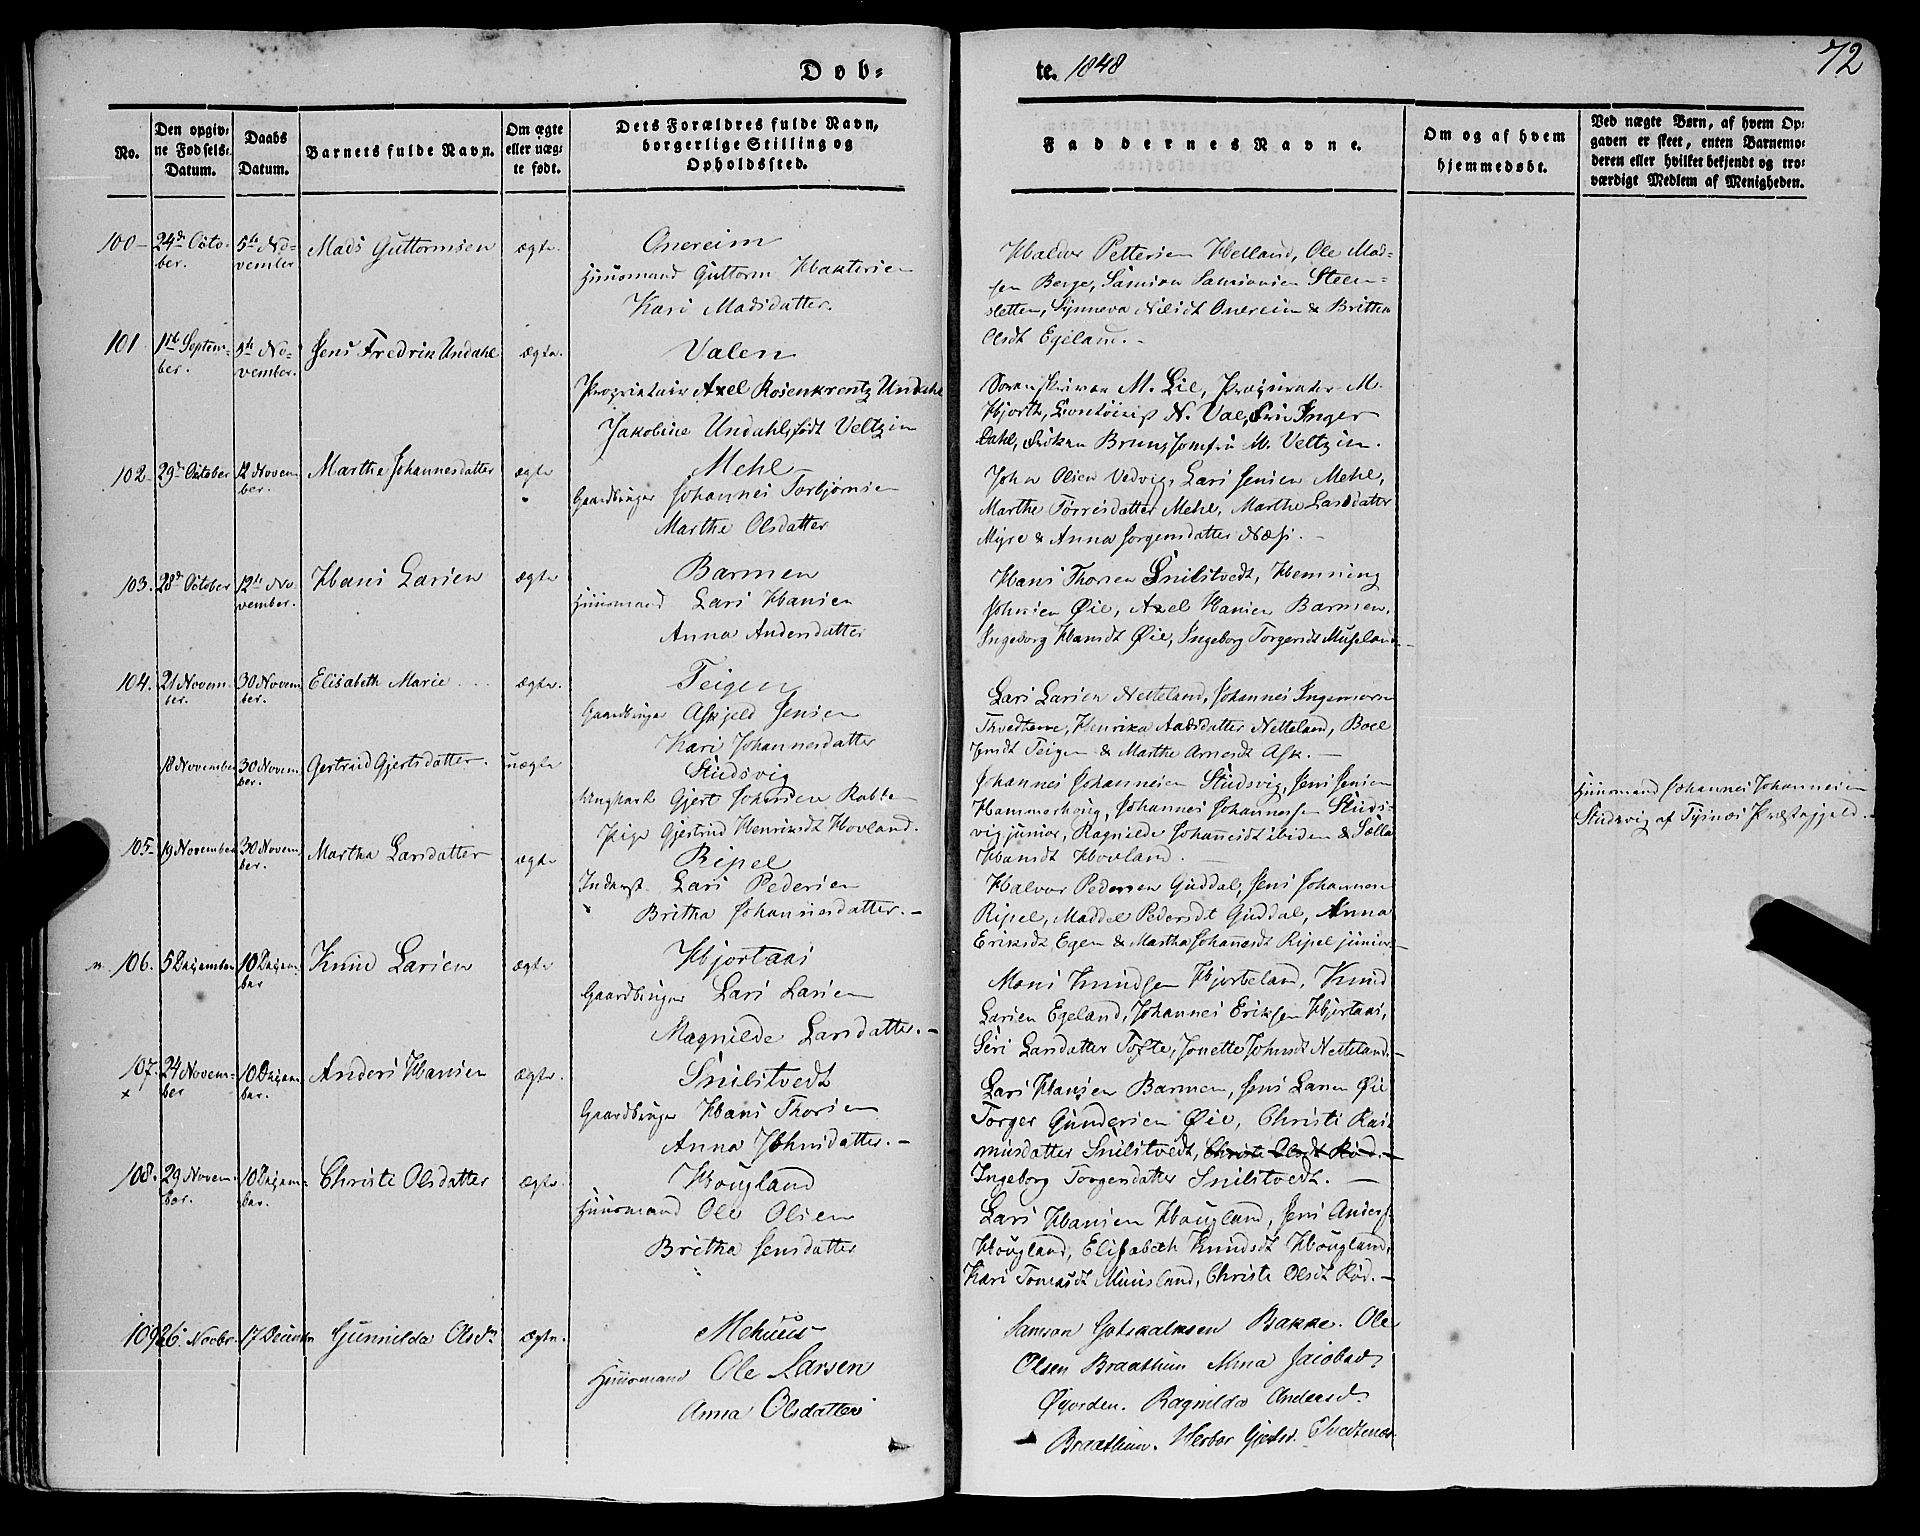 Døb=
te. 1848
72
No.
Den opgiv=
ne Fødsels=
Datum.
Daabs
Datum.
Barnets fulde Navn.
Om ægte
eller uæg=
te født.
Dets Forældres fulde Navn,
borgerlige Stilling og
Opholdssted.
Faddernes Navne.
Om og af hvem
hjemmedøbt.
Ved uægte Børn, af hvem Op=
gaven er skeet, enten Barnemo=
deren eller hvilket bekjendt og tro=
værdigt Medlem af Menigheden.
100 - 24de Octo- 5te No- Mads Guttormsen ægte. Onereim
ber. vember
Huusmand Guttorm Haktorsen
Kari Madsdatter.
Haldor Pettersen Helland, Ole Mad=
sen Berge, Samson Samsonsen Steen=
sletten, Synneva Nilsdt Onereim & Britha
Olsdt Egeland. -
101 1ste Septem- 5te No- Jens Fredrin Undahl ægte. Valen
ber. vember.
Proprietair Axel Rosenkrentz Undahl
Jakobine Undahl, født Veltzin
Sorenskriver M. Lie, Procurator M.
Hjorth, N. Vae, Inger
Dahl, Bruns, Jomfru M. Veltzin.
102 - 29de October 12 Novem Martha Johannesdatter ægte Mehl
ber.
Gaardbruger Johannes Torbjørnsen
Marthe Olsdatter
John Olsen Vedvig, Lars Jensen Mehl,
Marthe Torrisdatter Mehl, Marthe Larsdatter
Myre & Anna Jorgensdatter Næss. -
103. 28de October 12te No- Hans Larsen ægte Barmen
vember.
Huusmand Lars Hansen
Anna Andersdatter
Hans Thorsen Snilstvedt, Hemning
Johnsen Øie, Axel Hansen Barmen,
Ingeborg Hansdt Øie, Ingeborg Torgersdt Musland -
104. 21 Novem- 30 Novem Elisabeth Marie ægte. Teigen
ber. ber.
Gaardbruger Askjeld Jensen
Kari Johannesdatter
Lars Larsen Netteland, Johannes Ingemorsen
Tvedtene, Henrika Aadsdatter Netteland, Boel
Jensdt Teigen & Marthe Arnesdt Ask. -
18 November 30 Novem Gertruid Gjertsdatter. uægte Studsvig
ber.
Ungkarl Gjert Johnsen Rabben
Pige Gjertrud Henriksdt Hovland.
Johannes Johannesen Studsvig, Jens Jensen
Hammerhoug, Johannes Johannessen Studs=
vig junior, Ragnilde Johannesdt ibidem & Sælle
Hansdt Hovland. -
Huusmand Johannes Johannesen
Studsvig af Tysnæs Præstegjeld. -
105 - 19 November 30 Novem Martha Larsdatter ægte Ripel
ber.
Inderst. Lars Pedersen
Britha Johannesdatter. -
Halvor Pedersen Guddal, Jens Johannesen
Ripel, Maddel Pedersdt Guddal, Anna
Eriksdt Egen & Martha Johannesdt Ripel junior. -
106. 5 December 10 Decem Knud Larsen ægte Hjortaas
ber
Gaardbruger Lars Larsen
Magnilde Larsdatter. -
Mons Knudsen Hjorteland, Knud
Larsen Egeland, Johannes Eriksen Hjortaas,
Siri Larsdatter Tofte, Jonette Johnsdt Netteland. -
107. 24 Novem- 10 Decem Anders Hansen ægte. Snilstvedt
x ber ber.
Gaardbruger Hans Thorsen
Anna Johnsdatter. -
Lars Hansen Barmen, Jens Larsen Øie
Torger Gundersen Øie, Christi Ras=
musdatter Snilstvedt, Christi Olsdt Rød. -
Ingeborg Torgersdatter Snilstvedt. -
108. 29 Novem- 10 Decem- Christi Olsdatter ægte. Hougland
ber. ber.
Huusmand Ole Olsen
Britha Jensdatter
Lars Hansen Hougland, Jens Anders.
Hougland, Elisabeth Knudsdt Hougland,
Kari Tomasdt Muusland, Christi Olsdt Rød. -
109 26 Novbr. 17 December Gunnilda Olsdr ægte. Mehuus
Huusmand Ole Larsen
Anna Olsdatter
Samson Gotskalksen Bakke. Ole
Olsen Braathun Anna Jacobsd.
Øyorden. Ragnilda Andersd.
Braathun. Herbor Gjertsd. Tvedtenes